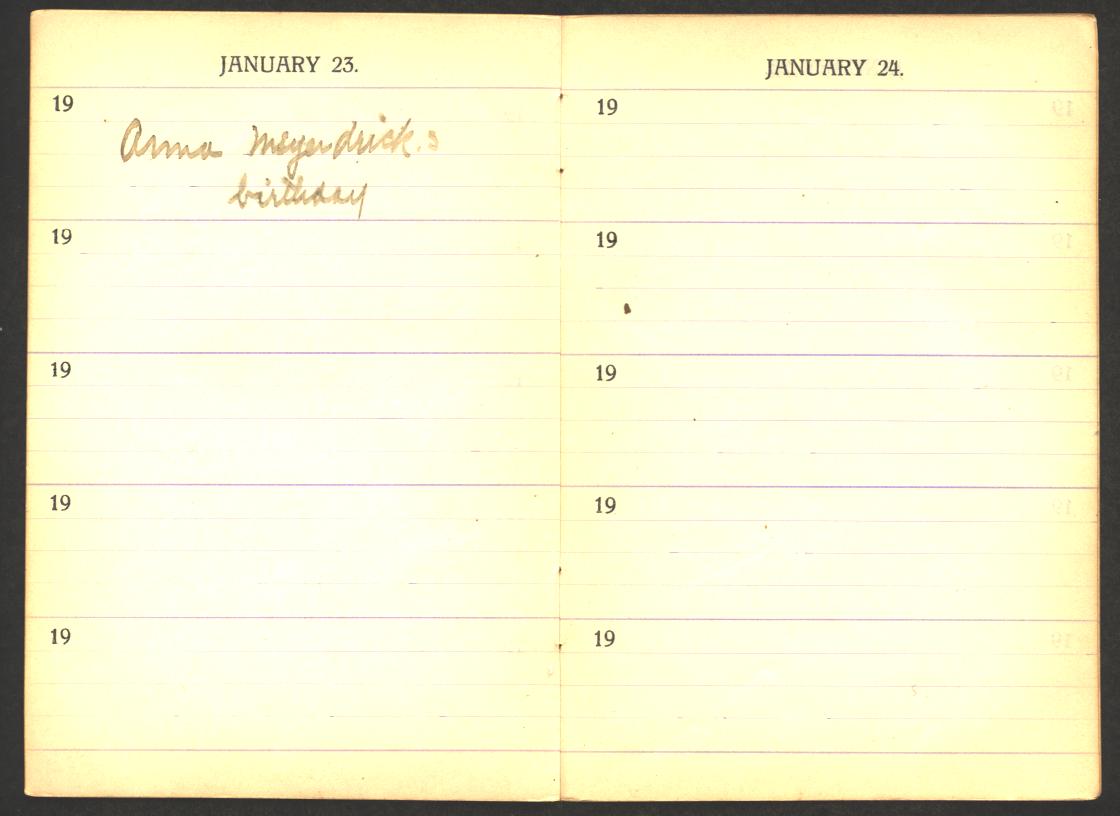 JANUARY 23.
19
Anna Meyendrick.s
birthday
19
19
19
19
JANUARY 24.
19
19
19
19
19